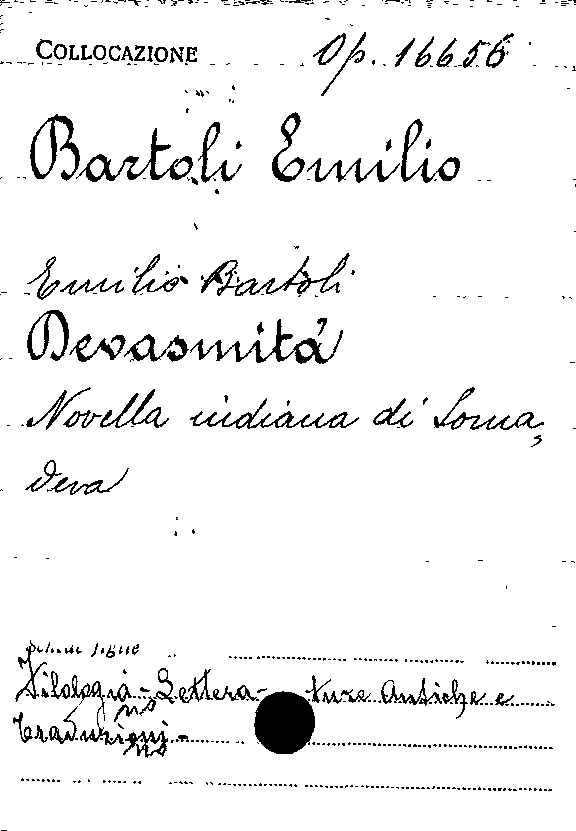 COLLOCAZIONE Op. 16656
Bartoli Emilio
Emilio Bartoli
Devasmitá
Novella indiana di Soma,
deva
Filologia - Lettera- ture Antiche e
no
Traduzioni -
no